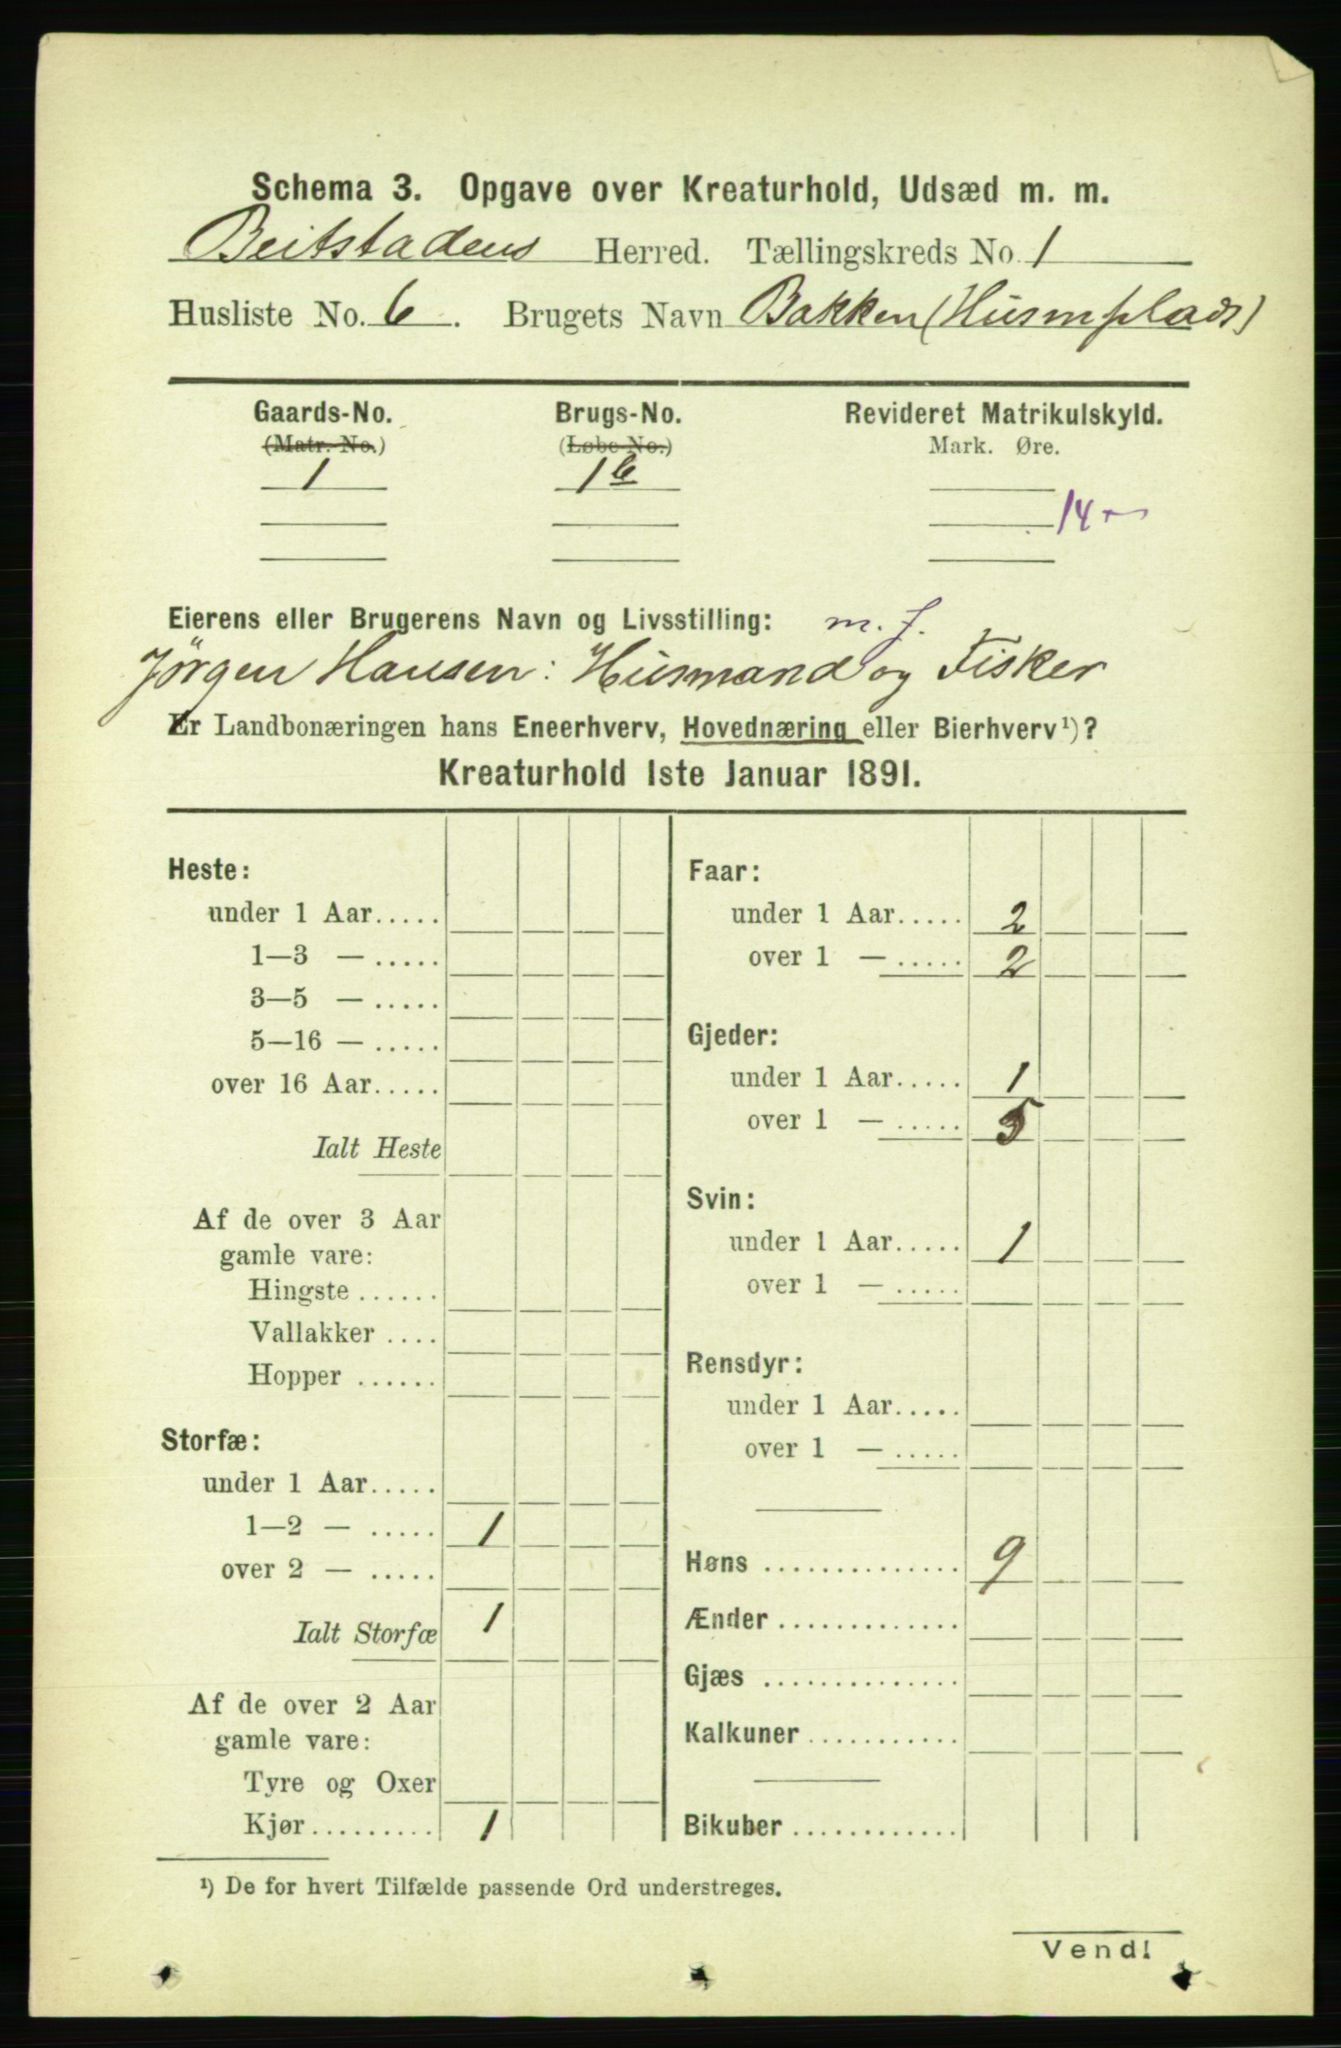 Schema 3. Opgave over Kreaturhold, Udsæd m. m.
Beitstadens Herred. Tællingskreds No. 1
Husliste No. 6. Brugets Navn Bakken (Husmplads)
Gaards-No. Brugs-No. Revideret Matrikulskyld.
(Matr. No.) (Løbe No.) Mark. Øre.
1 1 6
14
Eierens eller Brugerens Navn og Livsstilling: m. f.
Jörgen Hansen: Husmand og Fisker
Er Landbonæringen hans Eneerhverv, Hovednæring eller Bierhverv¹)?
Kreaturhold 1ste Januar 1891.
Heste:
under 1 Aar.....
1—3 — .....
3—5 — .....
5—16 — .....
over 16 Aar.....
Ialt Heste
Af de over 3 Aar
gamle vare:
Hingste ......
Vallakker ....
Hopper ......
Storfæ:
under 1 Aar.....
1—2 — ..... 1
over 2 — .....
Ialt Storfæ 1
Af de over 2 Aar
gamle vare:
Tyre og Oxer
Kjør......... 1
Faar:
under 1 Aar..... 2
over 1 — ..... 2
Gjeder:
under 1 Aar..... 1
over 1 — ..... 5
Svin:
under 1 Aar..... 1
over 1 — .....
Rensdyr:
under 1 Aar.....
over 1 — .....
Høns .............. 9
Ænder .............
Gjæs ..............
Kalkuner ...........
Bikuber ............
¹) De for hvert Tilfælde passende Ord understreges.
Vend!